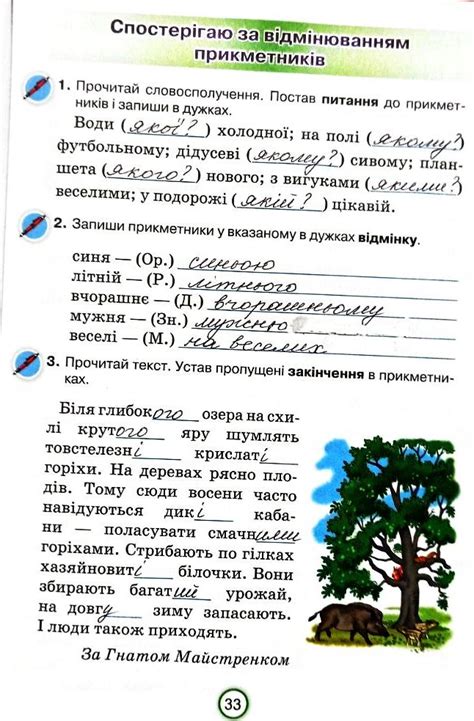 Спостерігаю за відмінюванням
прикметників
1. Прочитай словосполучення. Постав питання до прикмет-
ників і запиши в дужках.
Води (якої?) холодної; на полі (якому?)
футбольному; дідусеві (якому?) сивому; план-
шета (якого?) нового; з вигуками (якими?)
веселими; у подорожі (якій?) цікавій.
2. Запиши прикметники у вказаному в дужках відмінку.
синя — (Ор.) синьою
літній — (Р.) літнього
вчорашнє — (Д.) вчорашньому
мужня — (Зн.) мужню
веселі — (М.) на веселих
3. Прочитай текст. Устав пропущені закінчення в прикметни-
ках.
Біля глибокого озера на схи-
лі крутого яру шумлять
товстелезні крислаті
горіхи. На деревах рясно пло-
дів. Тому сюди восени часто
навідуються дикі каба-
ни — поласувати смачними
горіхами. Стрибають по гілках
хазяйновиті білочки. Вони
збирають багатий урожай,
на довгу зиму запасають.
І люди також приходять.
За Гнатом Майстренком
33